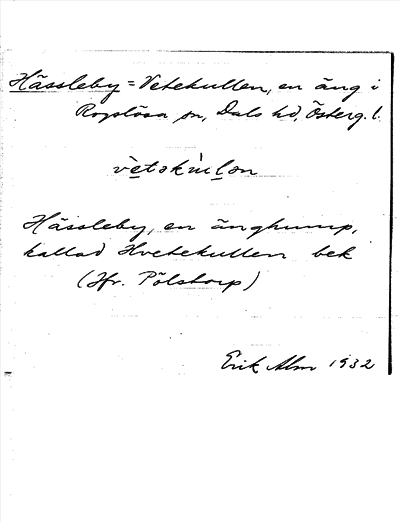 Hässleby = Vetekullen, en äng i
Rogslösa sn, Dals hd, Österg. l.
vètəkulən
Hässleby, en änghump,
kallad Hvetekullen bek
(Jfr. Pölstorp)
Erik Alm 1932